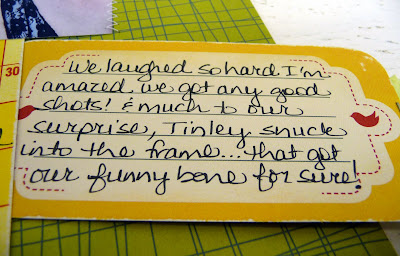 30
we laughed so hard. I'm
amazed we got any good
shots! & much to our
surprise, Tinley snuck
into the frame...that got
our funny bone for sure!